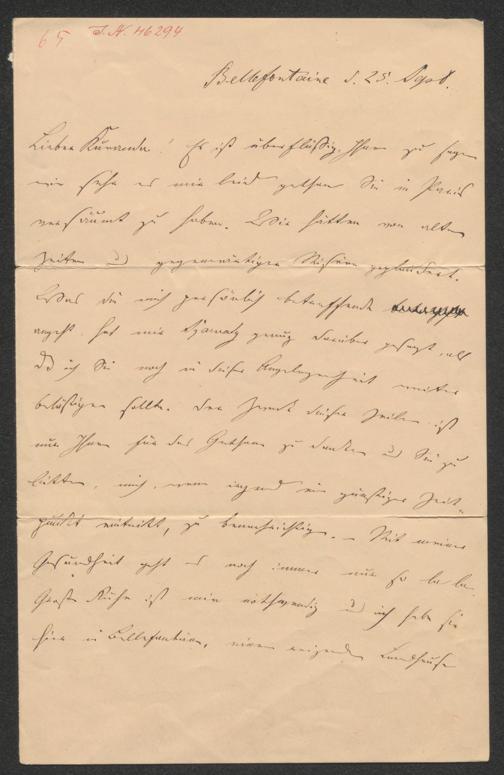 65 I.N. 46294
Bellefontaine d. 25. Spt.
Lieber Kuranda! Es ist überflüssig, Ihnen zu sagen
wie sehr es mir leid gethan Sie in Paris
versäumt zu haben. Wir hätten von alten
Zeiten u gegenwärtiger Misère geplaudert.
Was die mich persönlich betreffende
angeht, hat mir genug darüber gesagt, als
daß ich Sie noch in dieser Angelegenheit weiter
belästigen sollte. Der Zweck dieser Zeilen ist
nur Ihnen für das Gethane zu danken u Sie zu
bitten, mich, wenn irgend ein günstiger Zeit-
punkt eintritt, zu benachrichtigen. – Mit meiner
Gesundheit geht es noch immer nur so la la.
Große Ruhe ist mir nothwendig u ich habe sie
hier in Bellefontaine, einem reizenden Landhause